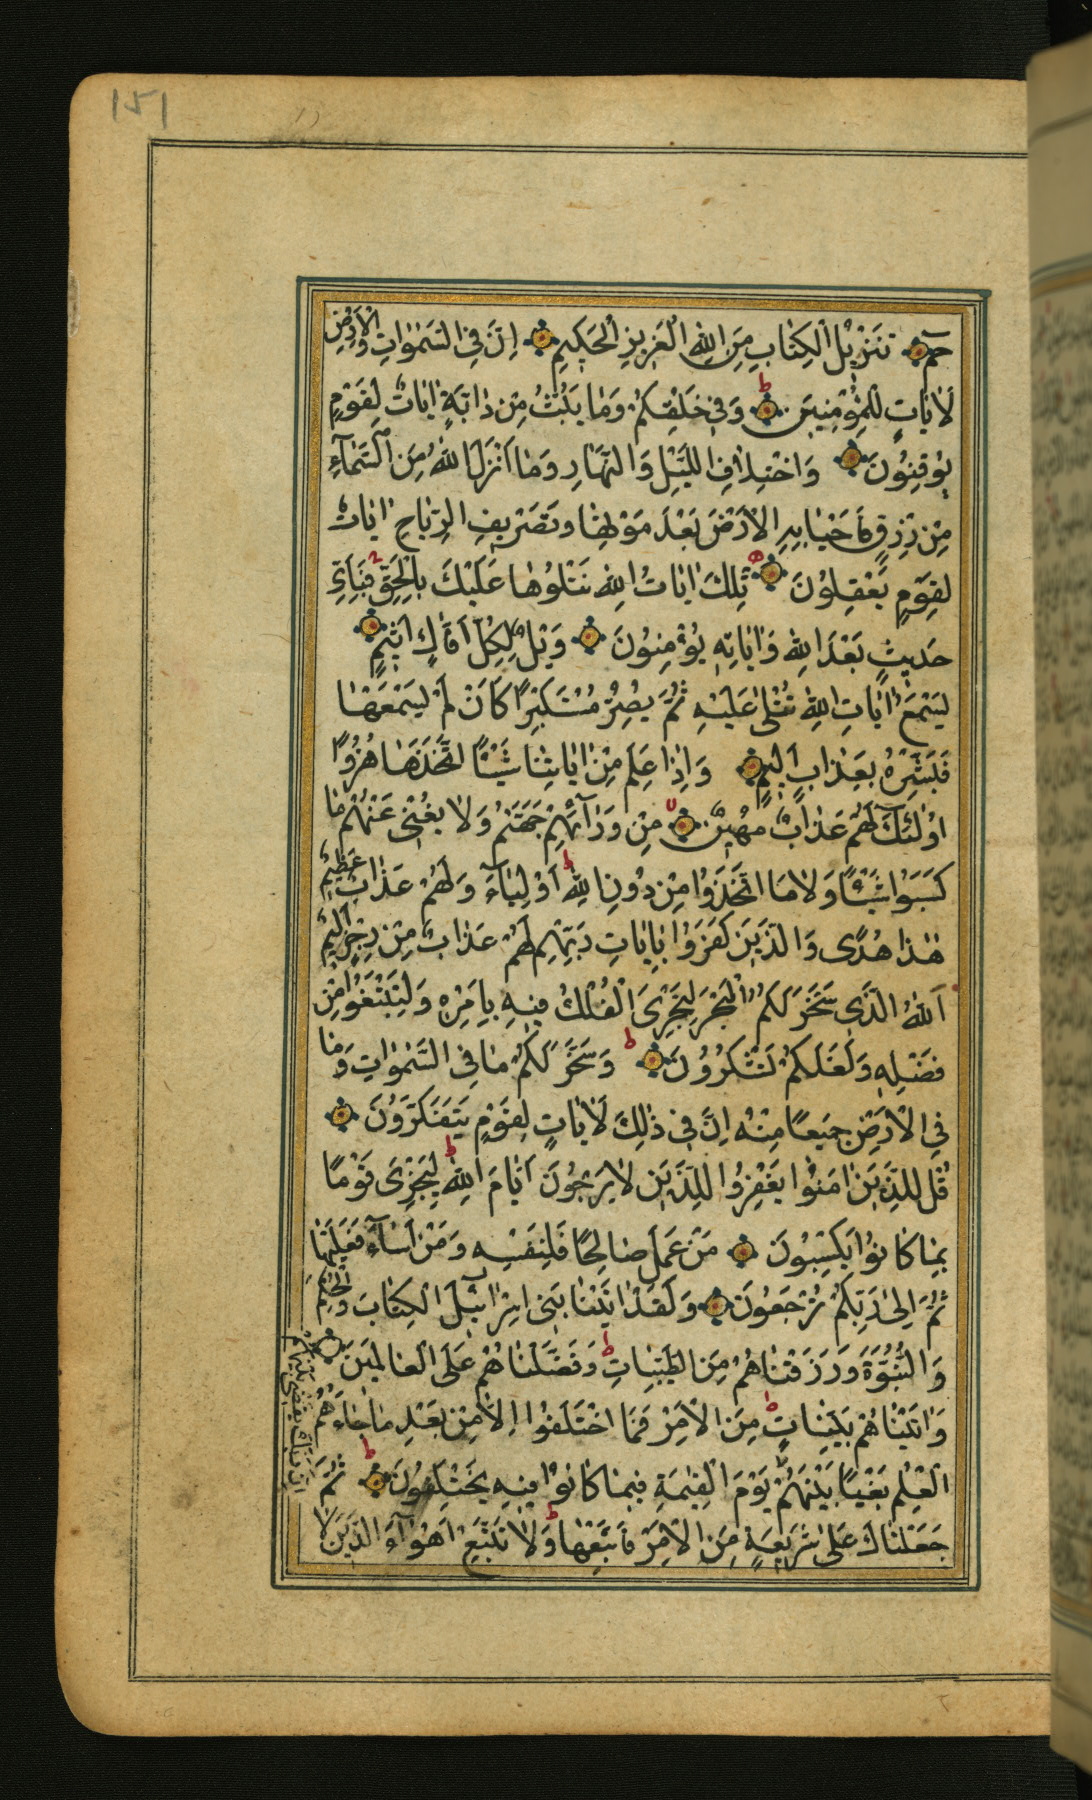 151
حم تَنْزِيلُ الْكِتَابِ مِنَ اللّٰهِ الْعَزِيزِ الْحَكِيمِ اِنَّ فِي السَّمٰوَاتِ وَالْاَرْضِ
لَاٰيَاتٍ لِلْمُؤْمِنِينَ ط وَفِي خَلْقِكُمْ وَمَا يَبُثُّ مِنْ دَابَّةٍ اٰيَاتٌ لِقَوْمٍ
يُوقِنُونَ وَاخْتِلَافِ اللَّيْلِ وَالنَّهَارِ وَمَا اَنْزَلَ اللّٰهُ مِنَ السَّمَآءِ
مِنْ رِزْقٍ فَاَحْيَا بِهِ الْاَرْضَ بَعْدَ مَوْتِهَا وَتَصْرِيفِ الرِّيَاحِ اٰيَاتٌ
لِقَوْمٍ يَعْقِلُونَ تِلْكَ اٰيَاتُ اللّٰهِ نَتْلُوهَا عَلَيْكَ بِالْحَقِّ فَبِاَيِّ
حَدِيثٍ بَعْدَ اللّٰهِ وَاٰيَاتِهِ يُؤْمِنُونَ وَيْلٌ لِكُلِّ اَفَّاكٍ اَثِيمٍ
يَسْمَعُ اٰيَاتِ اللّٰهِ تُتْلٰى عَلَيْهِ ثُمَّ يُصِرُّ مُسْتَكْبِرًا كَاَنْ لَمْ يَسْمَعْهَا
فَبَشِّرْهُ بِعَذَابٍ اَلِيمٍ وَاِذَا عَلِمَ مِنْ اٰيَاتِنَا شَيْئًا اتَّخَذَهَا هُزُوًا
اُولٰئِكَ لَهُمْ عَذَابٌ مُهِينٌ مِنْ وَرَآئِهِمْ جَهَنَّمُ وَلَا يُغْنِي عَنْهُمْ مَا
كَسَبُوا شَيْئًا وَلَا مَا اتَّخَذُوا مِنْ دُونِ اللّٰهِ ط اَوْلِيَآءَ وَلَهُمْ عَذَابٌ عَظِيمٌ
هٰذَا هُدًى وَالَّذِينَ كَفَرُوا بِاٰيَاتِ رَبِّهِمْ لَهُمْ عَذَابٌ مِنْ رِجْزٍ اَلِيمٌ
اَللّٰهُ الَّذِي سَخَّرَ لَكُمُ الْبَحْرَ لِتَجْرِيَ الْفُلْكُ فِيهِ بِاَمْرِهِ وَلِتَبْتَغُوا مِنْ
فَضْلِهِ وَلَعَلَّكُمْ تَشْكُرُونَ ط وَسَخَّرَ لَكُمْ مَا فِي السَّمٰوَاتِ وَمَا
فِي الْاَرْضِ جَمِيعًا مِنْهُ اِنَّ فِي ذٰلِكَ لَاٰيَاتٍ لِقَوْمٍ يَتَفَكَّرُونَ
قُلْ لِلَّذِينَ اٰمَنُوا يَغْفِرُوا لِلَّذِينَ لَا يَرْجُونَ اَيَّامَ اللّٰهِ ط لِيَجْزِيَ قَوْمًا
بِمَا كَانُوا يَكْسِبُونَ مَنْ عَمِلَ صَالِحًا فَلِنَفْسِهِ وَمَنْ اَسَآءَ فَعَلَيْهَا
ثُمَّ اِلٰى رَبِّكُمْ تُرْجَعُونَ وَلَقَدْ اٰتَيْنَا بَنِي اِسْرَائِيلَ الْكِتَابَ وَالْحُكْمَ
وَالنُّبُوَّةَ وَرَزَقْنَاهُمْ مِنَ الطَّيِّبَاتِ ط وَفَضَّلْنَاهُمْ عَلَى الْعَالَمِينَ
وَاٰتَيْنَاهُمْ بَيِّنَاتٍ ط مِنَ الْاَمْرِ فَمَا اخْتَلَفُوا اِلَّا مِنْ بَعْدِ مَا جَاءَهُمُ
الْعِلْمُ بَغْيًا بَيْنَهُمْ يَوْمَ الْقِيٰمَةِ فِيمَا كَانُوا فِيهِ يَخْتَلِفُونَ ط ثُمَّ
اِنَّ رَبَّكَ يَقْضِي بَيْنَهُمْ
جَعَلْنَاكَ عَلٰى شَرِيعَةٍ مِنَ الْاَمْرِ فَاتَّبِعْهَا ط وَلَا تَتَّبِعْ اَهْوَآءَ الَّذِينَ لَا